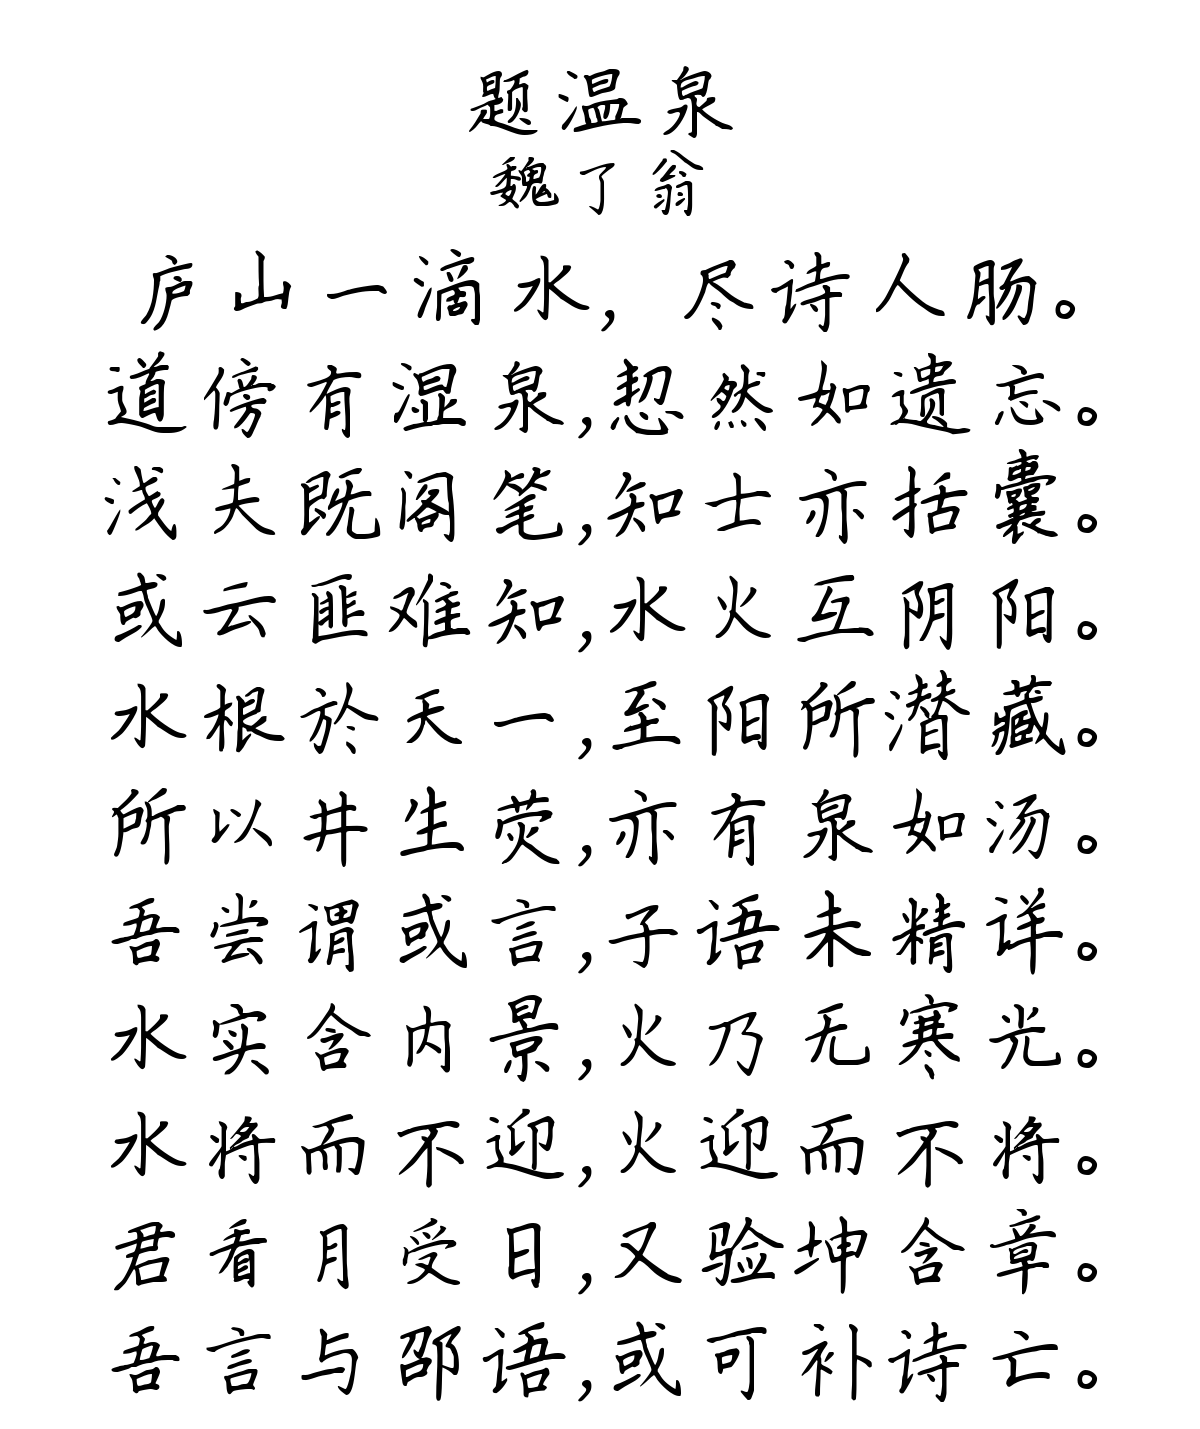 题温泉
魏了翁
庐山一滴水，尽诗人肠。
道傍有湿泉,恝然如遗忘。
浅夫既阁笔,知士亦括囊。
或云匪难知,水火互阴阳。
水根於天一,至阳所潜藏。
所以井生荧,亦有泉如汤。
吾尝谓或言,子语未精详。
水实含内景,火乃无寒光。
水将而不迎,火迎而不将。
君看月受日,又验坤含章。
吾言与邵语,或可补诗亡。